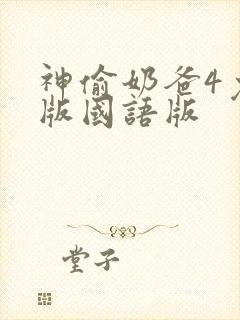 神偷奶爸4
版國語版
堂子